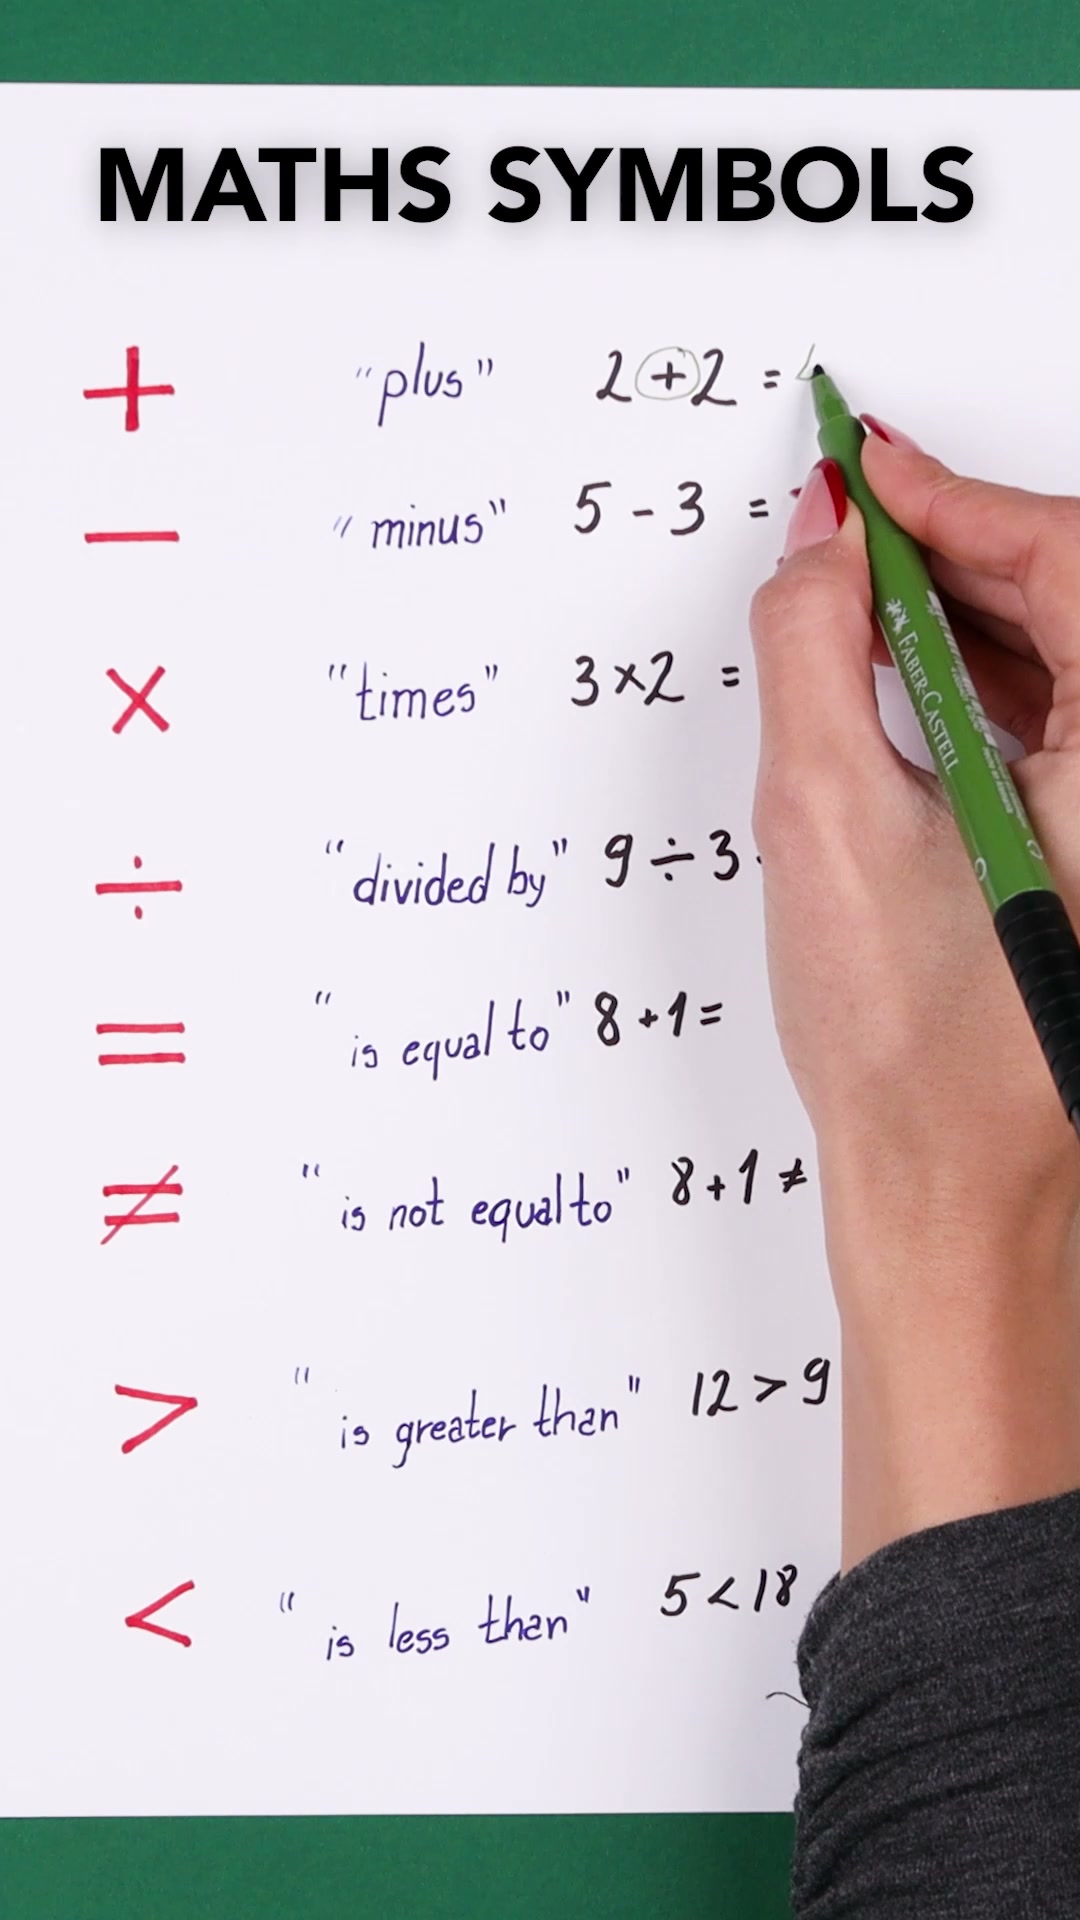 MATHS SYMBOLS
+ "plus" 2 + 2 = 4
− "minus" 5 - 3 =
× "times" 3 × 2 =
÷ "divided by" 9 ÷ 3
= "is equal to" 8 + 1 =
≠ "is not equal to" 8 + 1 ≠
> "is greater than" 12 > 9
< "is less than" 5 < 18
FABER-CASTELL